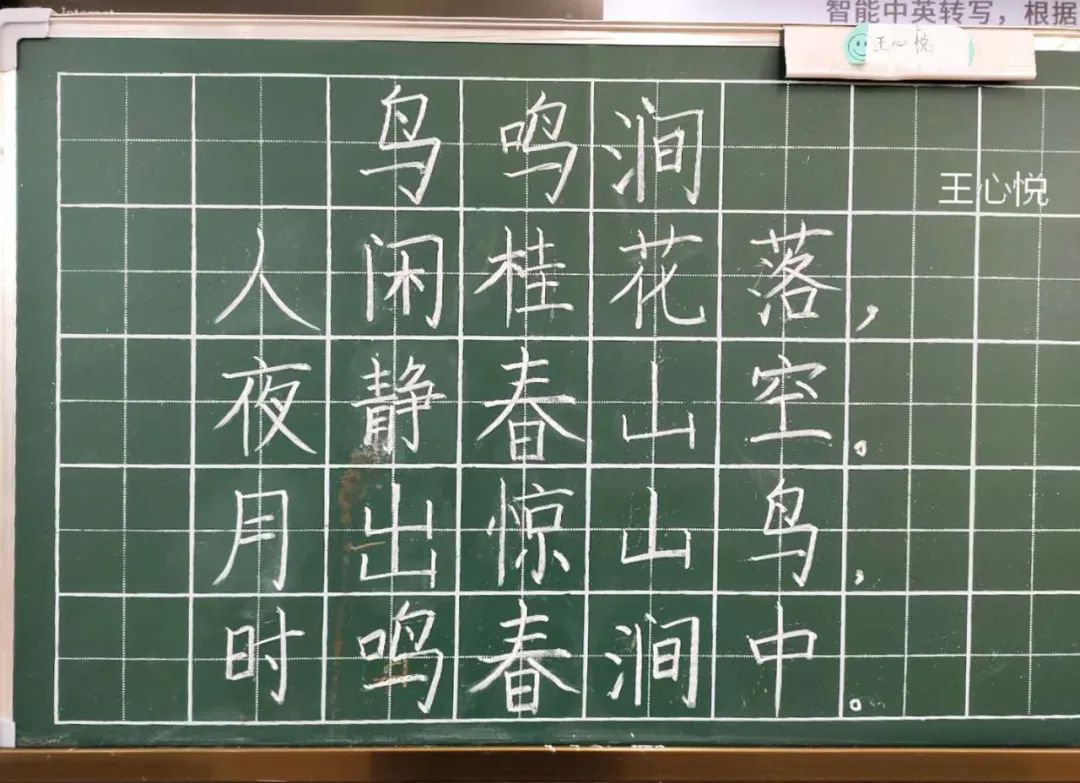 Internet
智能中英转写，根据
王心悦
王心悦
鸟鸣涧
人闲桂花落，
夜静春山空。
月出惊山鸟，
时鸣春涧中。